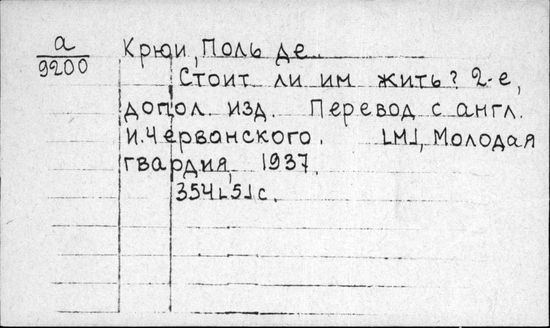 а
9200
Крюи, Поль де
Стоит ли им жить? 2-е,
допол. изд. Перевод с англ.
И. Червонского. [М], Молодая
гвардия, 1937.
354[5]с.